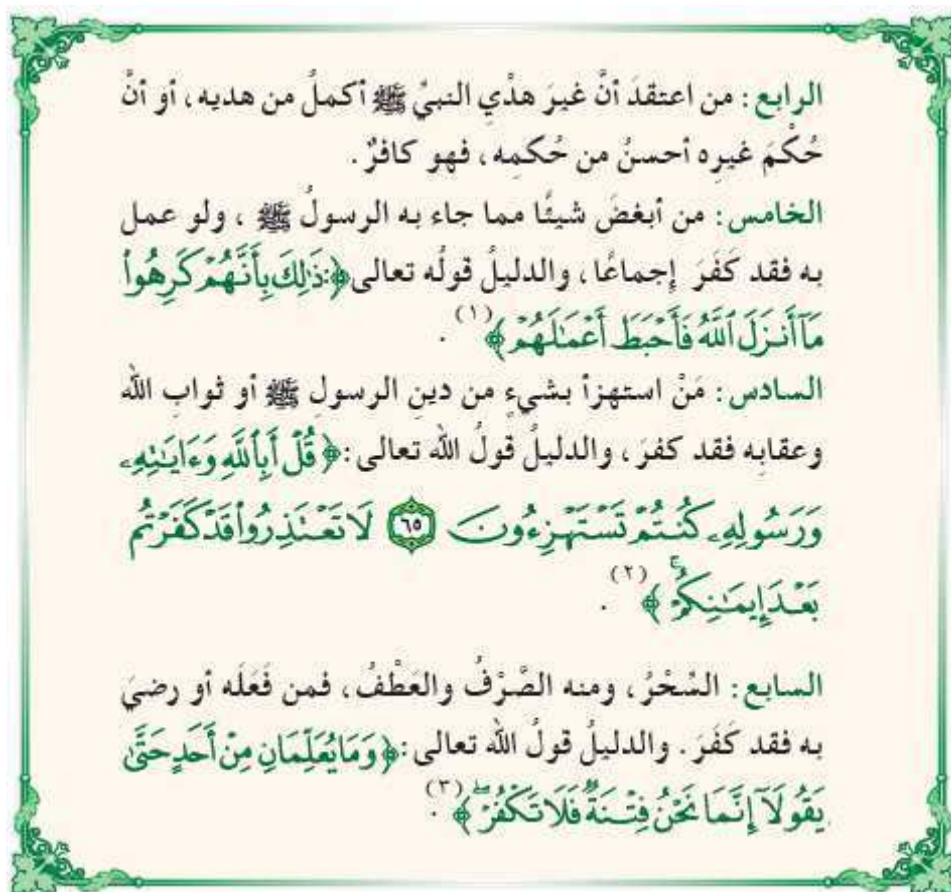 الرابع: من اعتقدَ أنَّ غيرَ هدْي النبيِّ ﷺ أكملُ من هديه، أو أنَّ
حُكْمَ غيرِه أحسنُ من حُكمِه، فهو كافرٌ.
الخامس: من أبغضَ شيئًا مما جاء به الرسولُ ﷺ، ولو عمل
به فقد كَفَرَ إجماعًا، والدليلُ قولُه تعالى ﴿ذَٰلِكَ بِأَنَّهُمْ كَرِهُواْ
مَآ أَنزَلَ ٱللَّهُ فَأَحْبَطَ أَعْمَٰلَهُمْ﴾ (١).
السادس: مَنْ استهزأ بشيءٍ من دينِ الرسولِ ﷺ أو ثوابِ الله
وعقابِه فقد كفرَ، والدليلُ قولُ الله تعالى: ﴿قُلْ أَبِٱللَّهِ وَءَايَٰتِهِۦ
وَرَسُولِهِۦ كُنتُمْ تَسْتَهْزِءُونَ ٦٥ لَا تَعْتَذِرُواْ قَدْ كَفَرْتُم
بَعْدَ إِيمَٰنِكُمْ ۚ﴾ (٢).
السابع: السِّحْرُ، ومنه الصَّرْفُ والعَطْفُ، فمن فَعَلَه أو رضيَ
به فقد كَفَرَ. والدليلُ قولُ الله تعالى: ﴿وَمَا يُعَلِّمَانِ مِنْ أَحَدٍ حَتَّىٰ
يَقُولَآ إِنَّمَا نَحْنُ فِتْنَةٌ فَلَا تَكْفُرْ ۖ﴾ (٣).